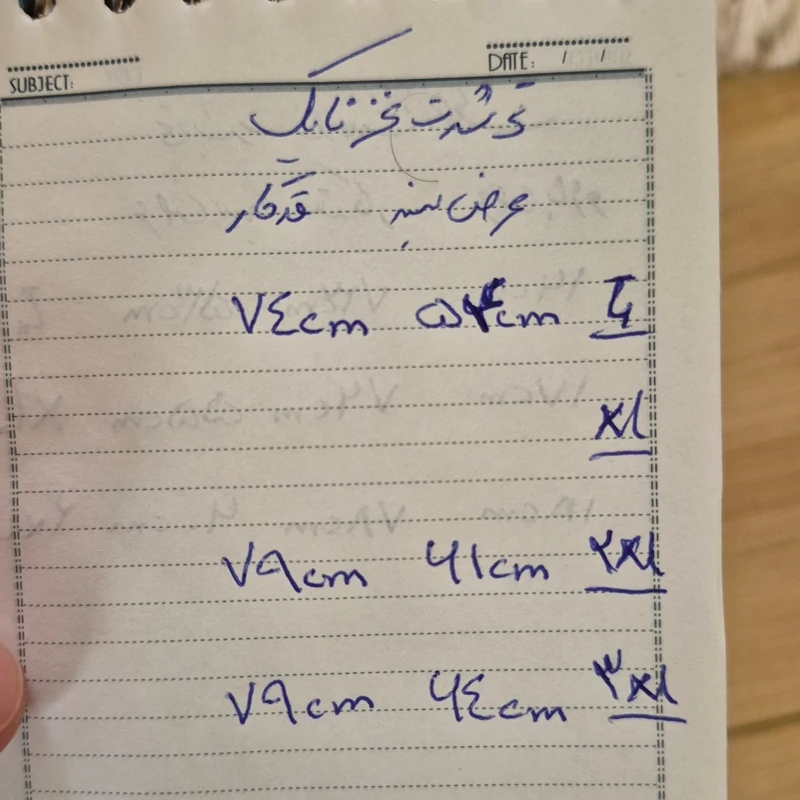 SUBJECT: DATE: / /
تی شرت نخ نایک
عرض سینه قد کار
L ۵۴cm ۷٤cm
XL
۲XL ۶۱cm ۷۹cm
۳XL ۶٤cm ۷۹cm